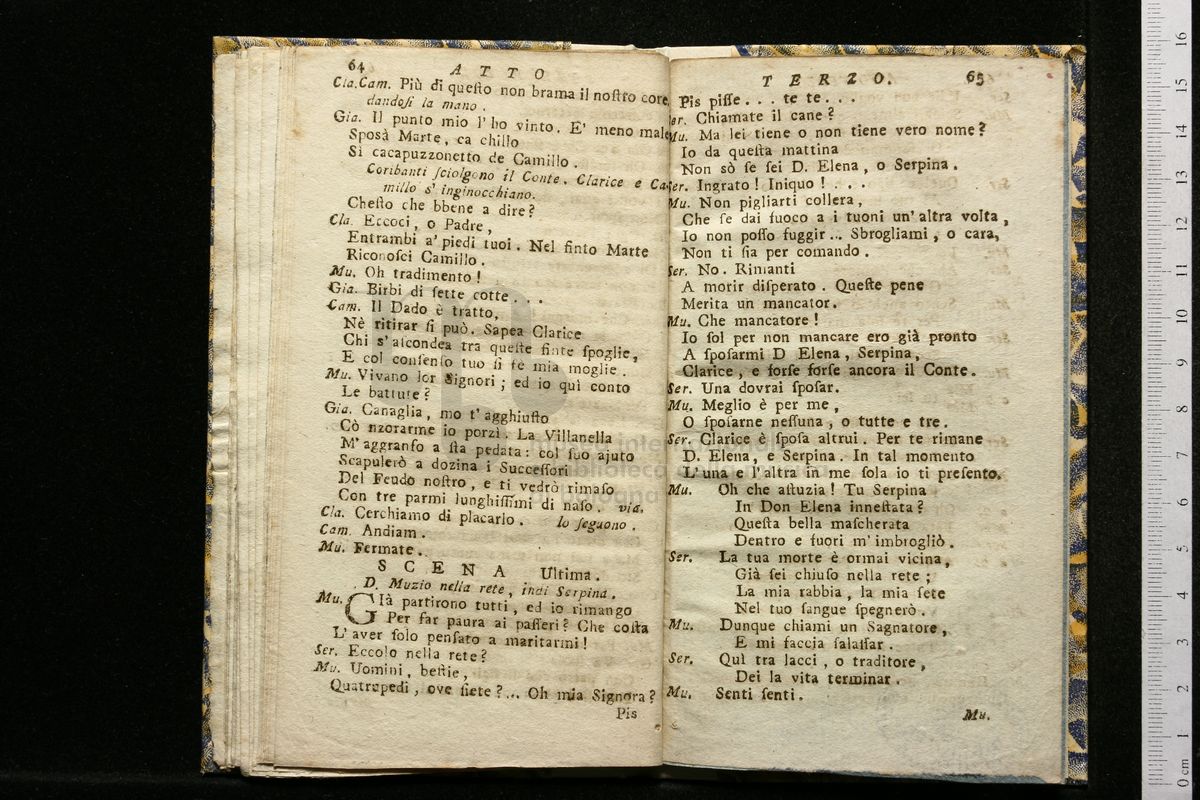 64
A T T O
Cla.Cam. Più di queſto non brama il noſtro core,
dandoſi la mano.
Gia. Il punto mio l'ho vinto. E' meno male
Sposà Marte, ca chillo
Si cacapuzzonetto de Camillo.
Coribanti ſciolgono il Conte. Clarice e Ca-
millo s'inginocchiano.
Cheſto che bbene a dire?
Cla. Eccoci, o Padre,
Entrambi a' piedi tuoi. Nel finto Marte
Riconoſci Camillo.
Mu. Oh tradimento!
Gia. Birbi di ſette cotte...
Cam. Il Dado è tratto,
Nè ritirar ſi può. Sapea Clarice
Chi s'aſcondea tra queſte finte ſpoglie,
E col conſenſo tuo ſi fe mia moglie.
Mu. Vivano lor Signori; ed io quì conto
Le battute?
Gia. Canaglia, mo t'agghiuſto
Cò nzorarme io porzì. La Villanella
M'aggranfo a ſta pedata: col ſuo ajuto
Scapulerò a dozina i Succeſſori
Del Feudo noſtro, e ti vedrò rimaſo
Con tre parmi lunghiſſimi di naſo. via.
Cla. Cerchiamo di placarlo. lo ſeguono.
Cam. Andiam.
Mu. Fermate.
S C E N A Ultima.
D. Muzio nella rete, indi Serpina.
Mu. GIà partirono tutti, ed io rimango
Per far paura ai paſſeri? Che coſta
L'aver ſolo penſato a maritarmi!
Ser. Eccolo nella rete?
Mu. Uomini, beſtie,
Quatrupedi, ove ſiete?... Oh mia Signora?
Pis
T E R Z O.
65
Pis piſſe... te te...
Ser. Chiamate il cane?
Mu. Ma lei tiene o non tiene vero nome?
Io da queſta mattina
Non sò ſe ſei D. Elena, o Serpina.
Ser. Ingrato! Iniquo!...
Mu. Non pigliarti collera,
Che ſe dai fuoco a i tuoni un'altra volta,
Io non poſſo fuggir... Sbrogliami, o cara,
Non ti ſia per comando.
Ser. No. Rimanti
A morir diſperato. Queſte pene
Merita un mancator.
Mu. Che mancatore!
Io ſol per non mancare ero già pronto
A ſpoſarmi D Elena, Serpina,
Clarice, e forſe forſe ancora il Conte.
Ser. Una dovrai ſpoſar.
Mu. Meglio è per me,
O ſpoſarne neſſuna, o tutte e tre.
Ser. Clarice è ſpoſa altrui. Per te rimane
D. Elena, e Serpina. In tal momento
L'una e l'altra in me ſola io ti preſento.
Mu. Oh che aſtuzia! Tu Serpina
In Don Elena inneſtata?
Queſta bella maſcherata
Dentro e fuori m'imbrogliò.
Ser. La tua morte è ormai vicina,
Già ſei chiuſo nella rete;
La mia rabbia, la mia ſete
Nel tuo ſangue ſpegnerò.
Mu. Dunque chiami un Sagnatore,
E mi faccia ſalaſſar.
Ser. Quì tra lacci, o traditore,
Dei la vita terminar.
Mu. Senti ſenti.
Mu.